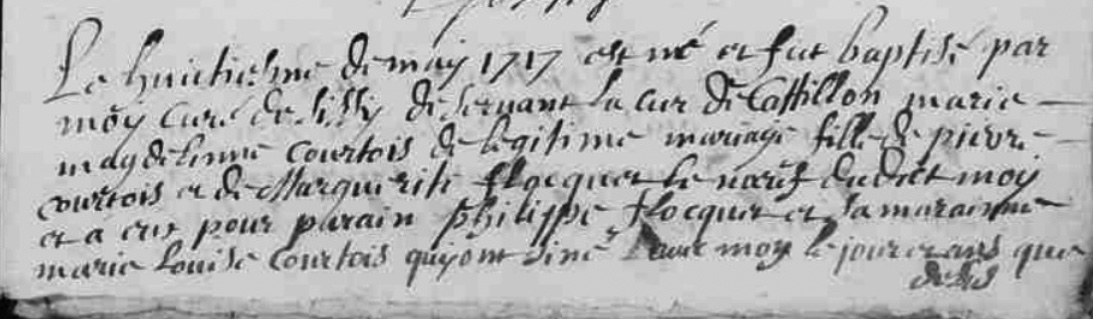 Le huictiesme de may 1717 est né et fut baptisé par
moy curé de Sissy deservant la cur de Cattillon marie
magdelenne courtois de legitime mariage fille de pierre
courtois et de Marguerite flocquet le neuf dudict moy
et a eut pour parain philippe flocquet et sa maraine
marie Louise Courtois qui ont siné avec moy le jour et ans que
dessus